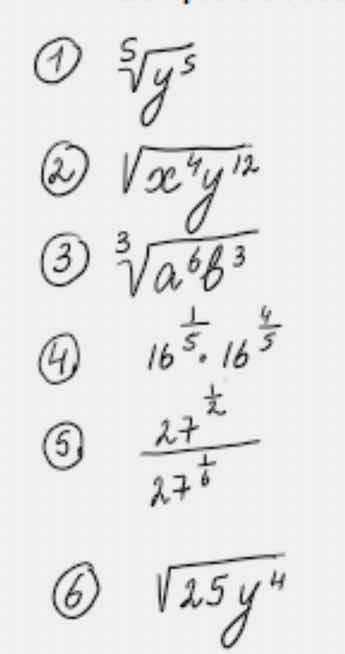 ① ⁵√y⁵
② √x⁴y¹²
③ ³√a⁶b³
④ 16^(1/5) · 16^(4/5)
⑤ 27^(1/2) / 27^(1/6)
⑥ √25y⁴